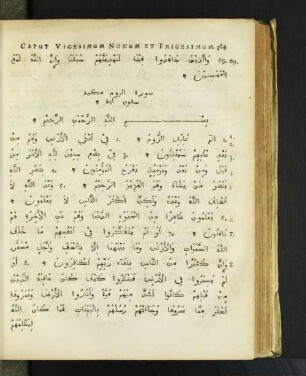 CAPUT VIGESIMUM NONUM ET TRIGESIMUM. 364
69. 69. وَٱلَّذِينَ جَاهَدُوا فِينَا لَنَهْدِيَنَّهُمْ سُبُلَنَا وَإِنَّ ٱللَّهَ لَمَعَ
ٱلْمُحْسِنِينَ
سورة الروم مكية
ستون آية
بِسْمِ ٱللَّهِ ٱلرَّحْمَنِ ٱلرَّحِيمِ
الم غُلِبَتِ ٱلرُّومُ فِي أَدْنَى ٱلْأَرْضِ وَهُمْ مِنْ
بَعْدِ غَلَبِهِمْ سَيَغْلِبُونَ فِي بِضْعِ سِنِينَ لِلَّهِ ٱلْأَمْرُ مِنْ
قَبْلُ وَمِنْ بَعْدُ وَيَوْمَئِذٍ يَفْرَحُ ٱلْمُؤْمِنُونَ بِنَصْرِ ٱللَّهِ
يَنْصُرُ مَنْ يَشَاءُ وَهُوَ ٱلْعَزِيزُ ٱلرَّحِيمُ وَعْدَ ٱللَّهِ لَا
يُخْلِفُ ٱللَّهُ وَعْدَهُ وَلَكِنَّ أَكْثَرَ ٱلنَّاسِ لَا يَعْلَمُونَ
يَعْلَمُونَ ظَاهِرًا مِنَ ٱلْحَيَوةِ ٱلدُّنْيَا وَهُمْ عَنِ ٱلْآخِرَةِ هُمْ
غَافِلُونَ أَوَ لَمْ يَتَفَكَّرُوا فِي أَنْفُسِهِمْ مَا خَلَقَ
ٱللَّهُ ٱلسَّمَوَاتِ وَٱلْأَرْضَ وَمَا بَيْنَهُمَا إِلَّا بِٱلْحَقِّ وَأَجَلٍ مُسَمًّى
وَإِنَّ كَثِيرًا مِنَ ٱلنَّاسِ بِلِقَاءِ رَبِّهِمْ لَكَافِرُونَ أَوَ
لَمْ يَسِيرُوا فِي ٱلْأَرْضِ فَيَنْظُرُوا كَيْفَ كَانَ عَاقِبَةُ ٱلَّذِينَ
مِنْ قَبْلِهِمْ كَانُوا أَشَدَّ مِنْهُمْ قُوَّةً وَأَثَارُوا ٱلْأَرْضَ وَعَمَرُوهَا
أَكْثَرَ مِمَّا عَمَرُوهَا وَجَاءَتْهُمْ رُسُلُهُمْ بِٱلْبَيِّنَاتِ فَمَا كَانَ ٱللَّهُ
لِيَظْلِمَهُمْ